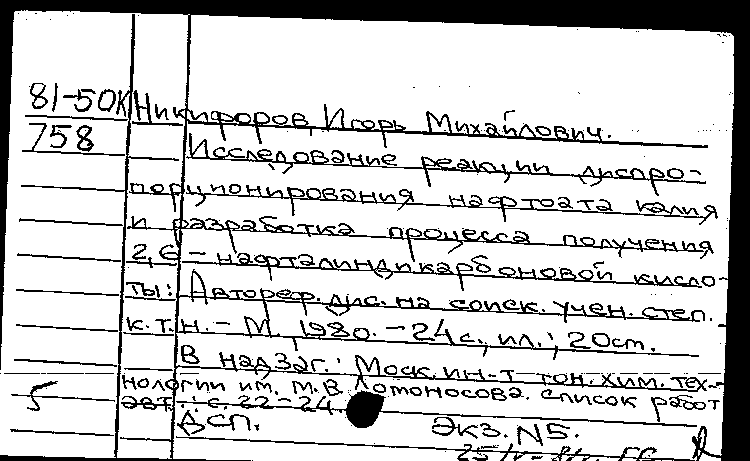 81-50К Никифоров, Игорь Михайлович.
758 Исследование реакции диспро-
порционирования нафтоата калия
и разработка процесса получения
2,6-нафталиндикарбоновой кисло-
ты: Автореф. дис. на соиск. учен. степ.
к.т.н. - М, 1980. - 24 с., ил.; 20 см.
В надзаг.: Моск. ин-т тон. хим. тех-
нологии им. М.В. Ломоносова. Список работ
5 авт.: с. 22-24.
ДСП. Экз. N5.